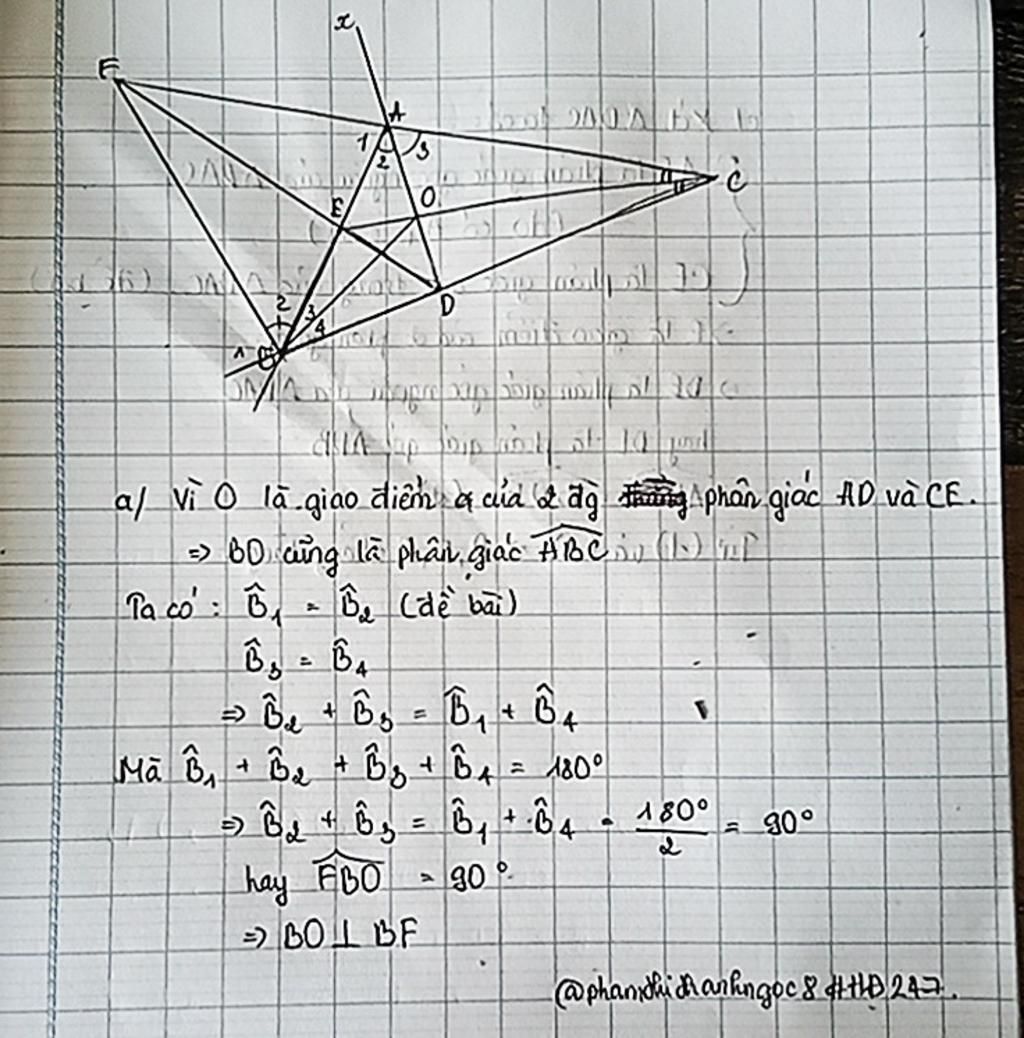 x
F
A
1
2
3
C
E
O
D
2
3
4
1
B
a/ Vì O là giao điểm của 2 đg phân giác AD và CE.
=> BO cũng là phân giác ABC
Ta có: B̂₁ = B̂₂ (đề bài)
B̂₃ = B̂₄
=> B̂₂ + B̂₃ = B̂₁ + B̂₄
Mà B̂₁ + B̂₂ + B̂₃ + B̂₄ = 180°
=> B̂₂ + B̂₃ = B̂₁ + B̂₄ = 180°/2 = 90°
hay FBO = 90°
=> BO ⊥ BF